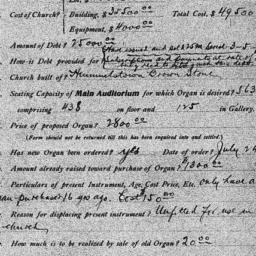 Cost of Church? Building, $35500.00 Total Cost, $49500
Equipment, $4000.00
Amount of Debt? 25000.00
How is Debt provided for
Church built of? Hummelstown Brown Stone
Seating Capacity of Main Auditorium for which Organ is desired? 563
comprising 438 on floor and 125 in Gallery.
Price of proposed Organ? 2800.00
(Form should not be returned till this has been inquired into and settled.)
Has new Organ been ordered? yes Date of Order? July 24
Amount already raised toward purchase of Organ? $1300.00
Particulars of present Instrument, Age, Cost Price, Etc. only have a
purchased 16 yrs ago. Cost $150.00
Reason for displacing present instrument? Unfitted for use in
church
How much is to be realized by sale of old Organ? 20.00